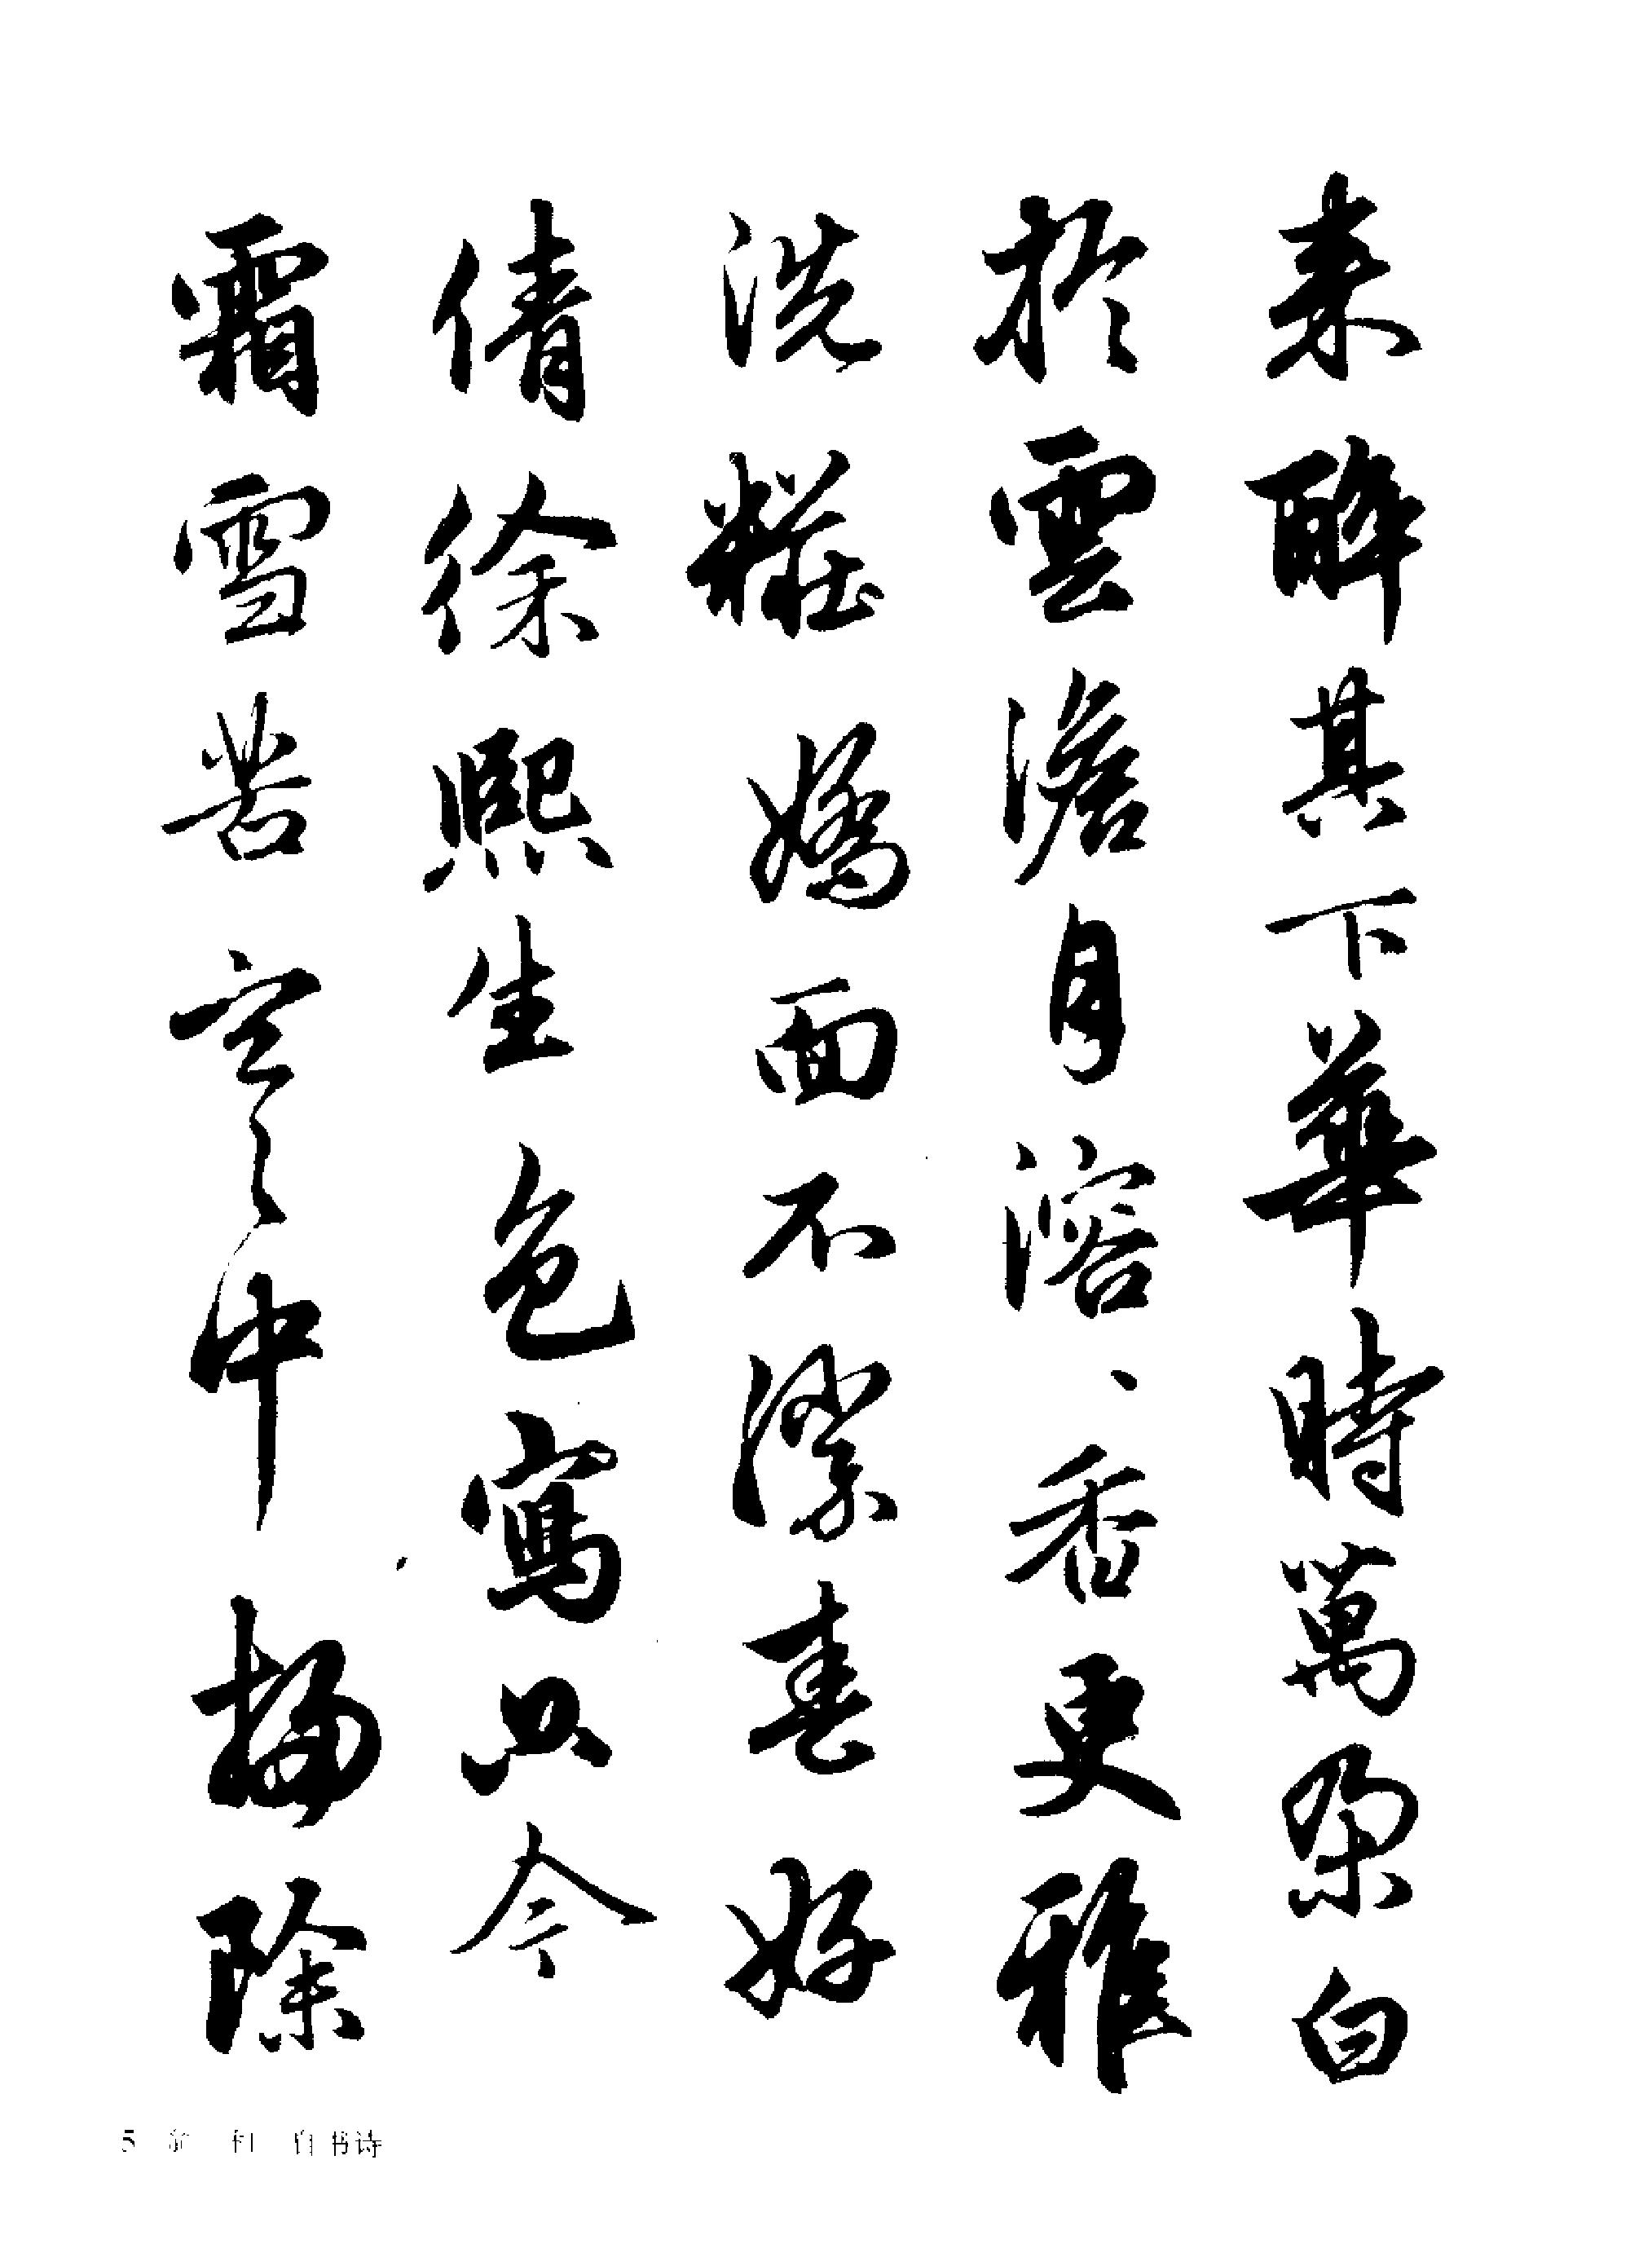 来醉其下華時萬朶白
於雲澹月溶、香更雅
洗糚嬌面不潔春好
倩徐熙生色寫只今
霜雪苦空之中掃除
5 俞 和 自书诗